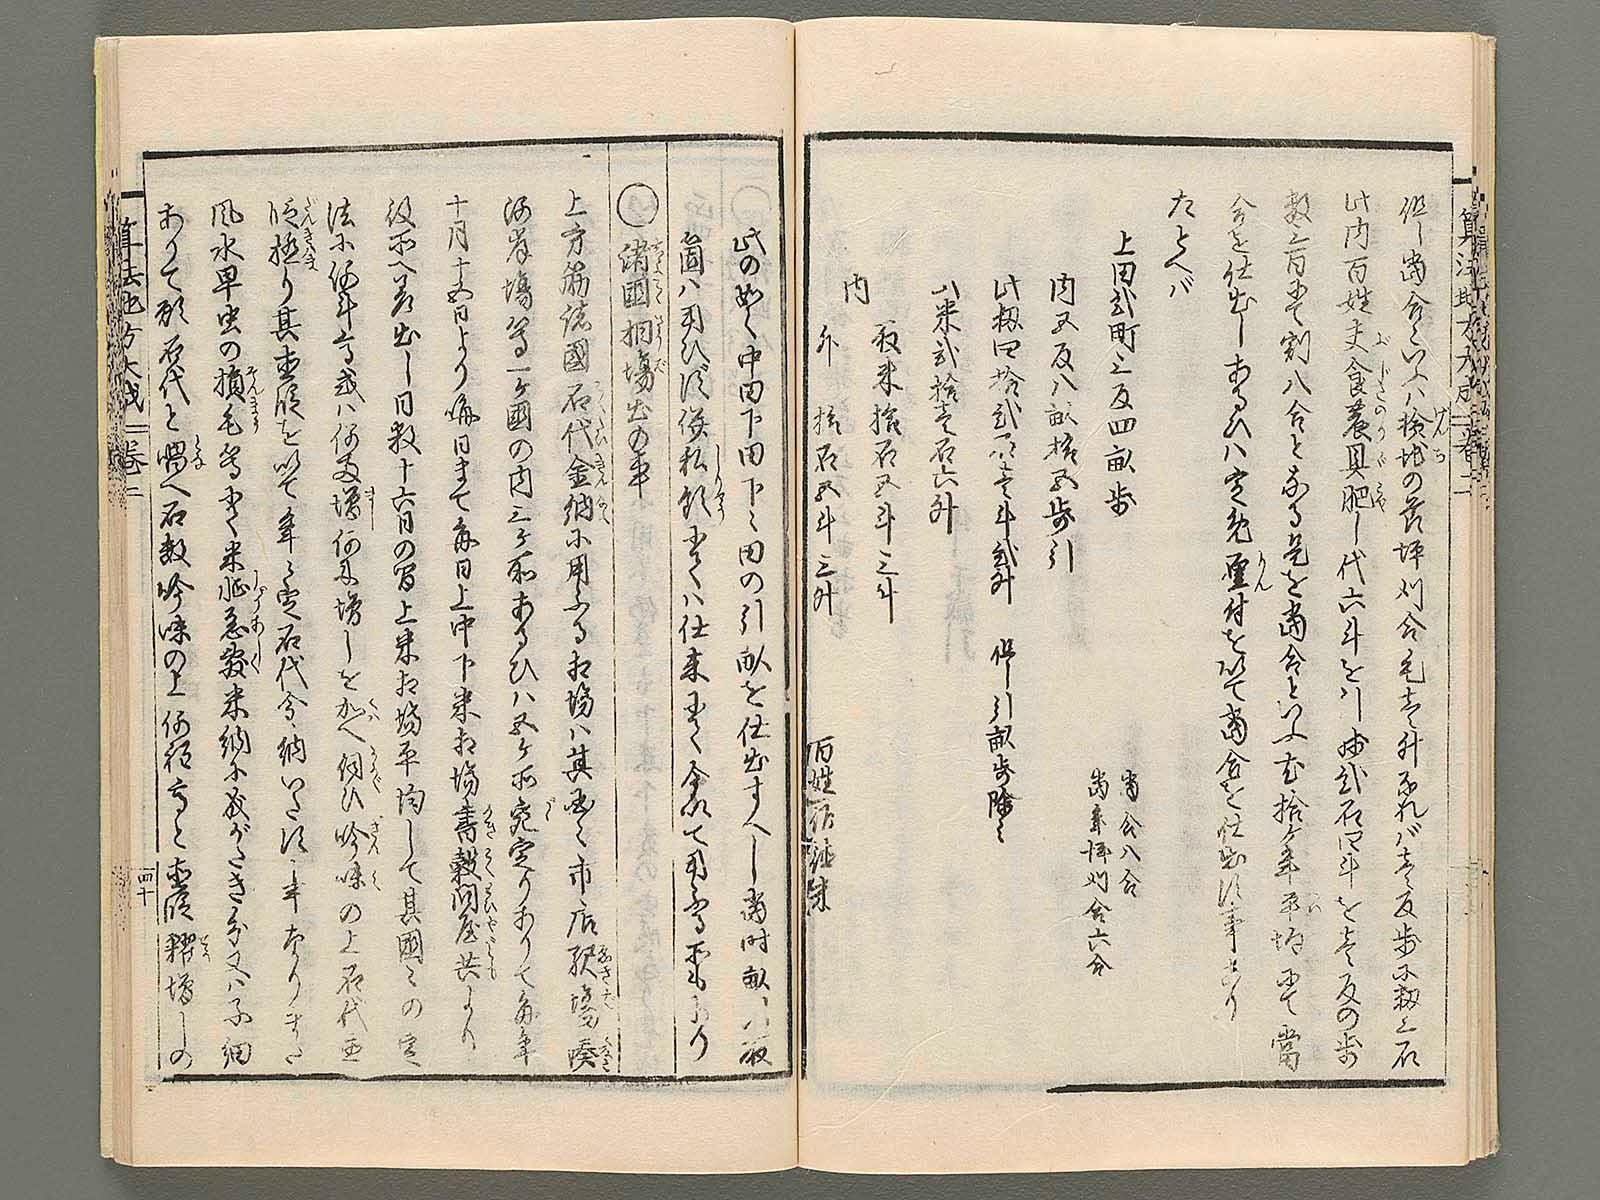 但し當合といふハ検地の節坪刈合毛壱升なれバ壱反歩に籾三石
此内百姓夫食農具肥し代六斗を引残弐石四斗を壱反の歩
数三百にて割八合となる是を當合といふ尤拾ケ年平均にて當
合を仕出しあるひハ定免厘付を以て當合を仕出す事あり
たとへバ
上田弐町三反四畝歩
當合八合
當年坪刈合六合
内五反八畝拾五歩引
此籾四拾弐石壱斗弐升 但し引畝歩除之
此米弐拾壱石六升
内
取米拾石五斗三升
外拾石五斗三升
百姓作徳米
算法地方大成 巻二
此の如く中田下田下々田の引畝を仕出すへし當時畝引ハ最
箇ハ用ひず併私領にてハ仕来にて今以て用る所もあり
○諸國相場出の事
上方筋諸國石代金納に用ふる相場ハ其国々市店駅場湊
河岸場等一ケ國の内三ケ所あるひハ五ケ所宛定りありて毎年
十月十五日より晦日まて毎日上中下米相場書穀問屋共より
役所へ差出し日数十六日の間上米相場平均して其國々の定
法に何斗高或ハ何匁増何分増しを加へ伺ひ吟味の上石代直
段極り其直段を以て年々定石代金納いたす年なりまた
風水旱虫の損毛等にて米性悪敷米納に成がたき分又ハ子細
ありて願石代と唱へ石数吟味の上何程高と直段糶増しの
算法地方大成 巻二
四十